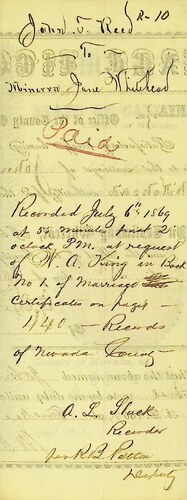 R-10
John T. Reed
To
Minerva Jane Whitead
Paid
Recorded July 6th 1869
at 55 minutes past 2
oclock P.M. at request
of N. A. King in Book
No 1. of Marriage
Certificates on page
1840 - Records
of Nevada County
A. L.
Recorder
per
Deputy